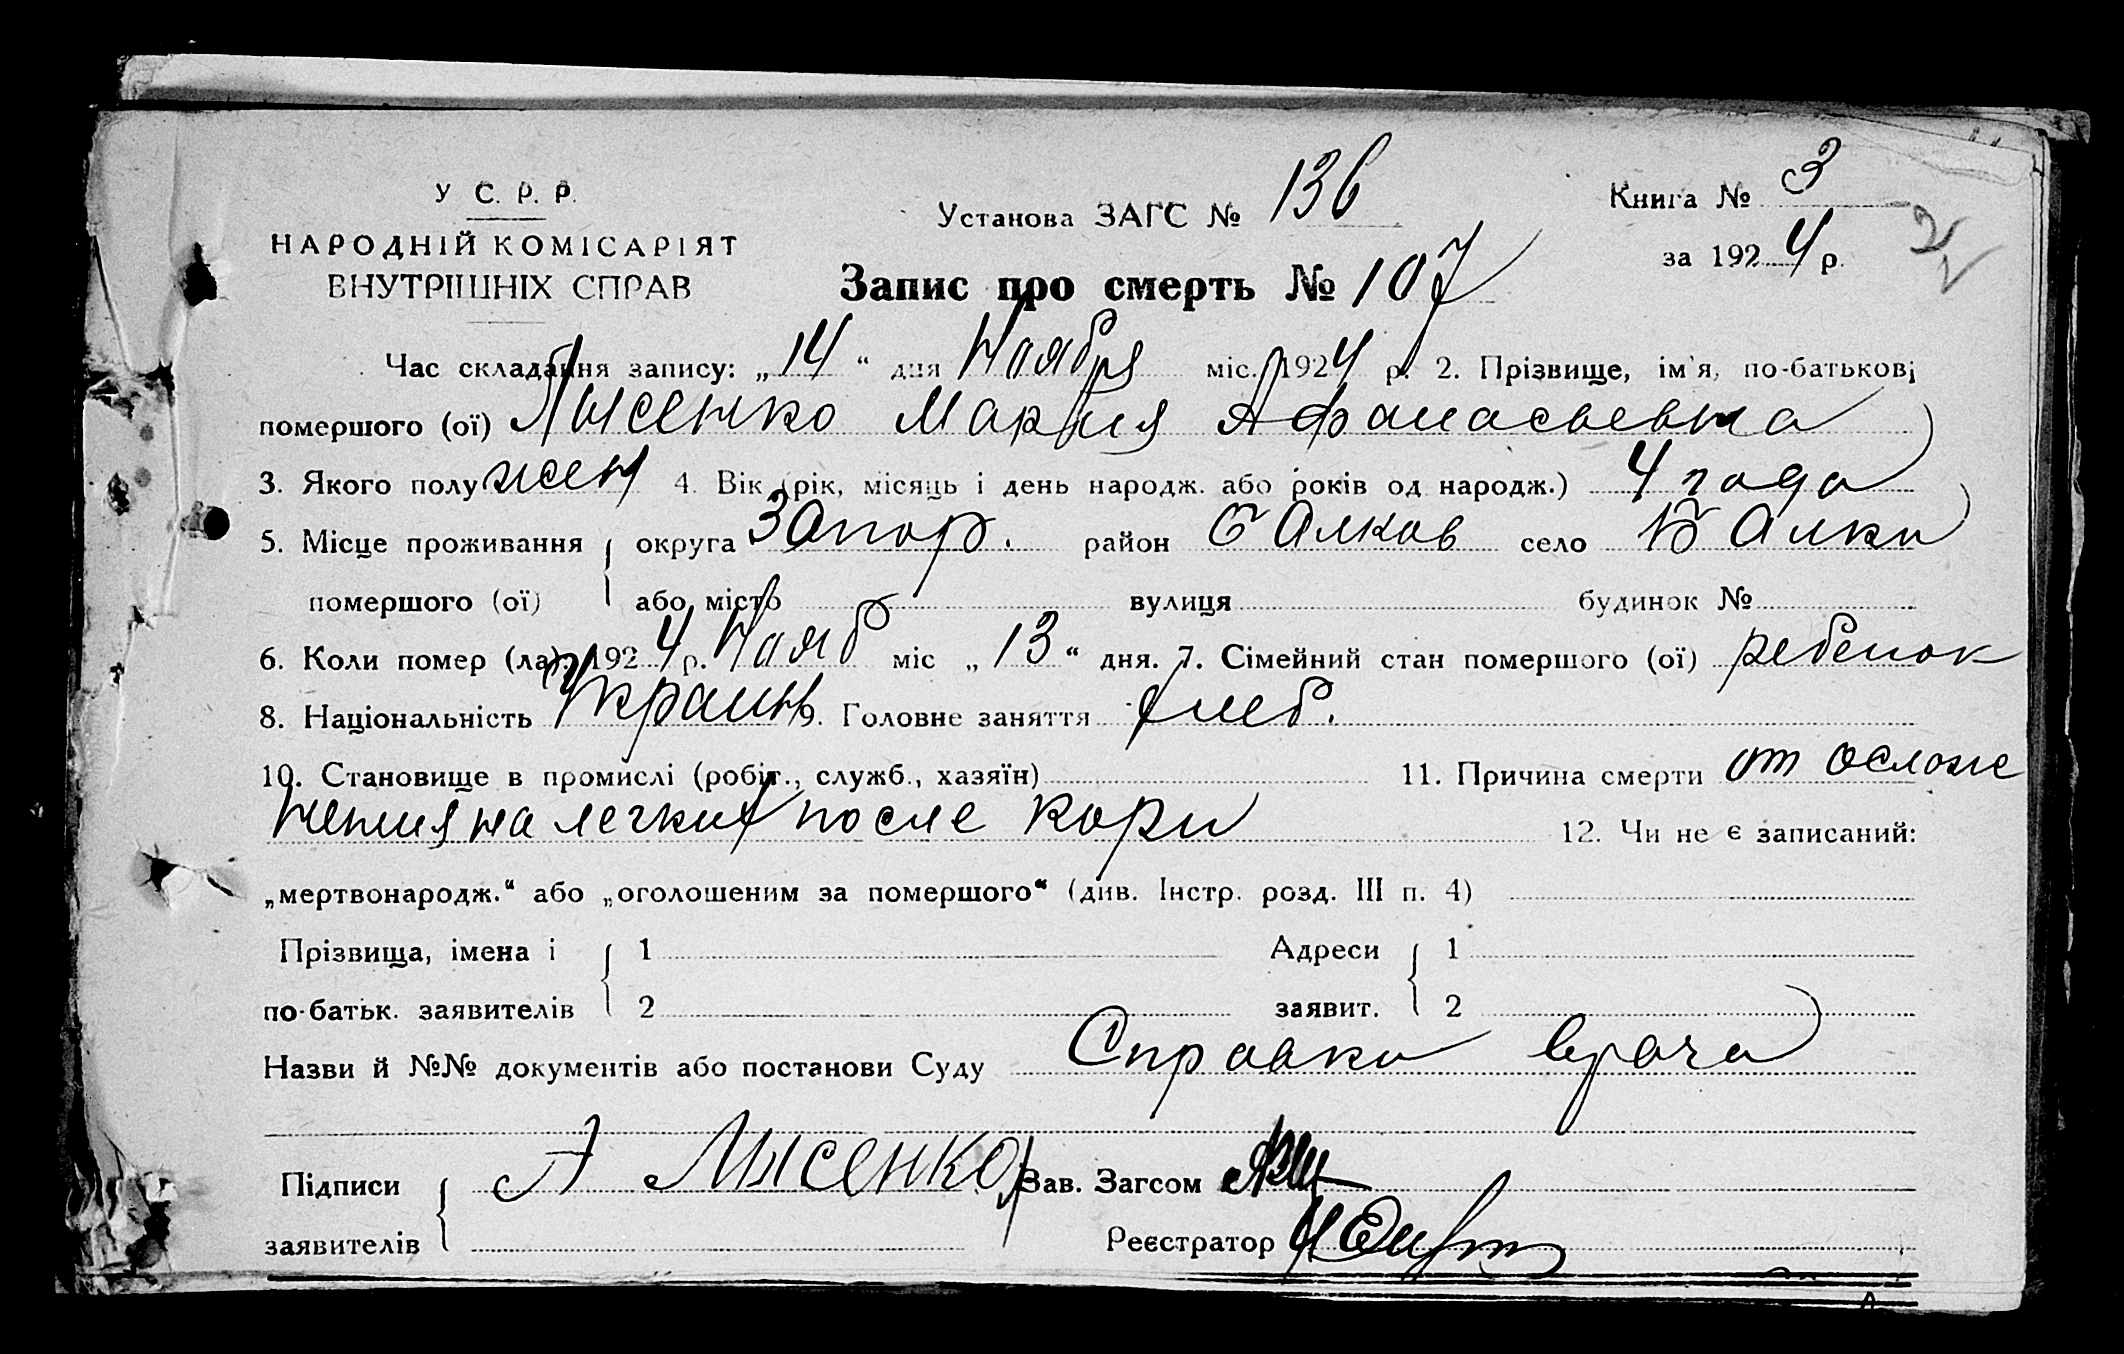 У С. Р. Р.
НАРОДНІЙ КОМІСАРІЯТ
ВНУТРІШНІХ СПРАВ
Установа ЗАГС № 136
Книга № 3
за 1924 р.
Запис про смерть № 107
Час складання запису: „14“ дня Ноября міс. 1924 р. 2. Прізвище, ім'я, по-батькові
помершого (ої) Лысенко Мария Афанасьевна
3. Якого полу жен 4. Вік (рік, місяць і день народж. або років од народж.) 4 года
5. Місце проживання округа Запор. район Балков село Балки
помершого (ої) або місто вулиця будинок №
6. Коли помер (ла) 1924 р. Нояб міс „13“ дня. 7. Сімейний стан помершого (ої) ребенок
8. Національність Украин 9. Головне заняття хлеб.
10. Становище в промислі (робіт., служб., хазяїн) 11. Причина смерти от осложе
нения на легких после кори 12. Чи не є записаний:
„мертвонародж.“ або „оголошеним за помершого“ (див. Інстр. розд. III п. 4)
Прізвища, імена і 1 Адреси 1
по-батьк. заявителів 2 заявит. 2
Назви й №№ документів або постанови Суду Справки врача
Підписи А Лысенко Зав. Загсом
заявителів Реєстратор